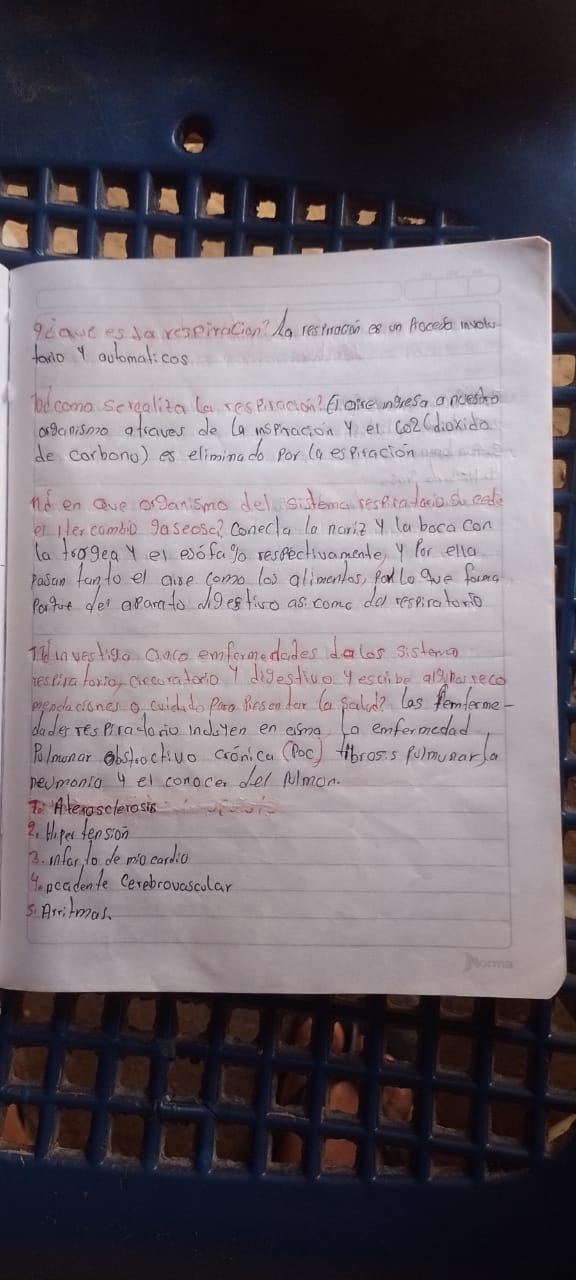 9¿que es la respiracion? La respiración es un Proceso involu
tario Y automaticos
10¿como se realiza la respiración? El aire ingresa a nuestro
organismo atraves de la inspiración y el Co2 (dioxido
de carbono) es eliminado por la espiración
11¿ en que organismo del sistema respiratorio Su cede
el iter cambio gaseose? Conecta la nariz y la boca con
la trogea Y el esófago respectivamente, y Por ella
Pasan tanto el aire como los alimentos, Por lo que forma
Parque del aparato digestivo asi como del respiratorio
investiga cinco emfermedades de los sistema
respiratorio, circuratorio Y digestivo y escribe algunas reco
mendaciones o cuidado Para Presentar la Salud? las
dades respiratorio incluyen en asma, la emfermedad
Pulmonar obstroctivo crónica (Poc) fibrosis Pulmunar, la
neumonia y el conocer del Pulmon.
1. Aterosclerosis
2. Hiper tensión
3. infarto de miocardio
4. accidente Cerebrovascular
5. Arritmas.
Norma